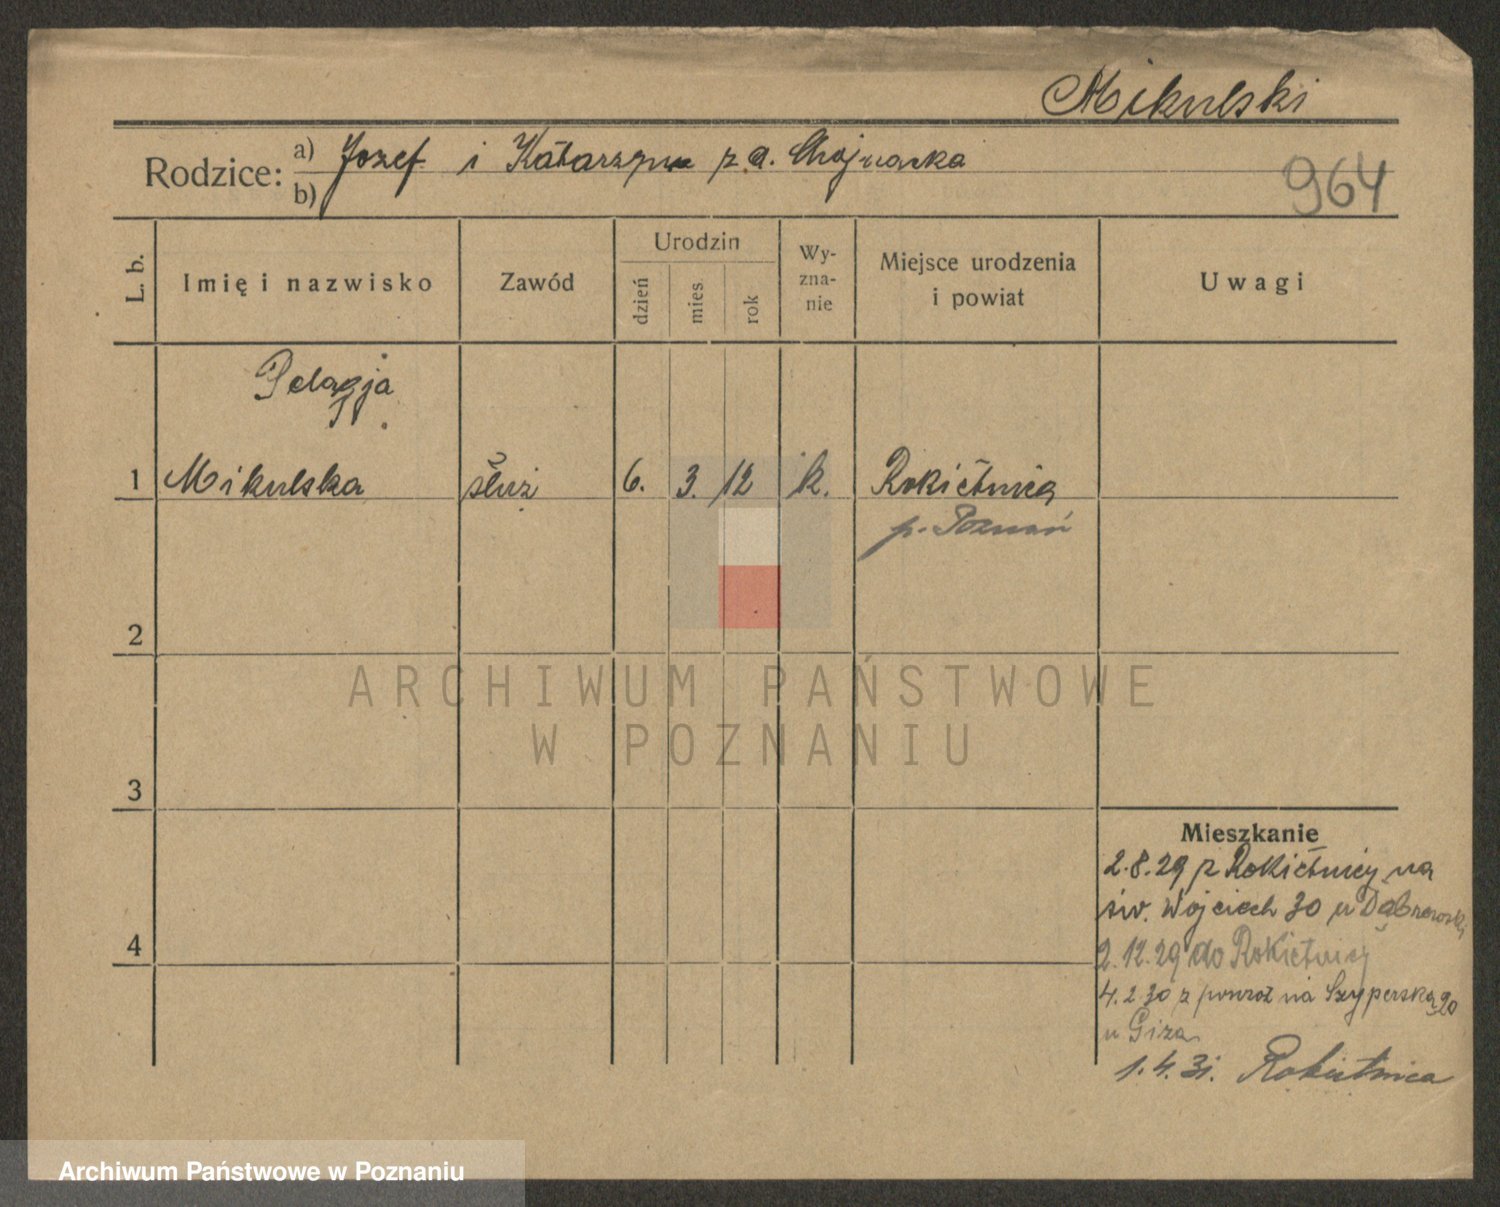 Mikulski
Rodzice: a) Jozef i Katarzyna z d. Chojnacka
b)
964
L. b.
Imię i nazwisko
Zawód
Urodzin
dzień
mies.
rok
Wy-
zna-
nie
Miejsce urodzenia
i powiat
Uwagi
Pelagja
1 Mikulska służ 6. 3. 12 k. Rokietnica
p. Poznań
2
ARCHIWUM PAŃSTWOWE
W POZNANIU
3
Mieszkanie
2.8.29 z Rokietnicy na
św. Wojciech 30 u Dąbrowski
4
2.12.29 do Rokietnicy
4.2.30 z powrot na Szyperską 20
u Giza
1.4.31. Rokietnica
Archiwum Państwowe w Poznaniu